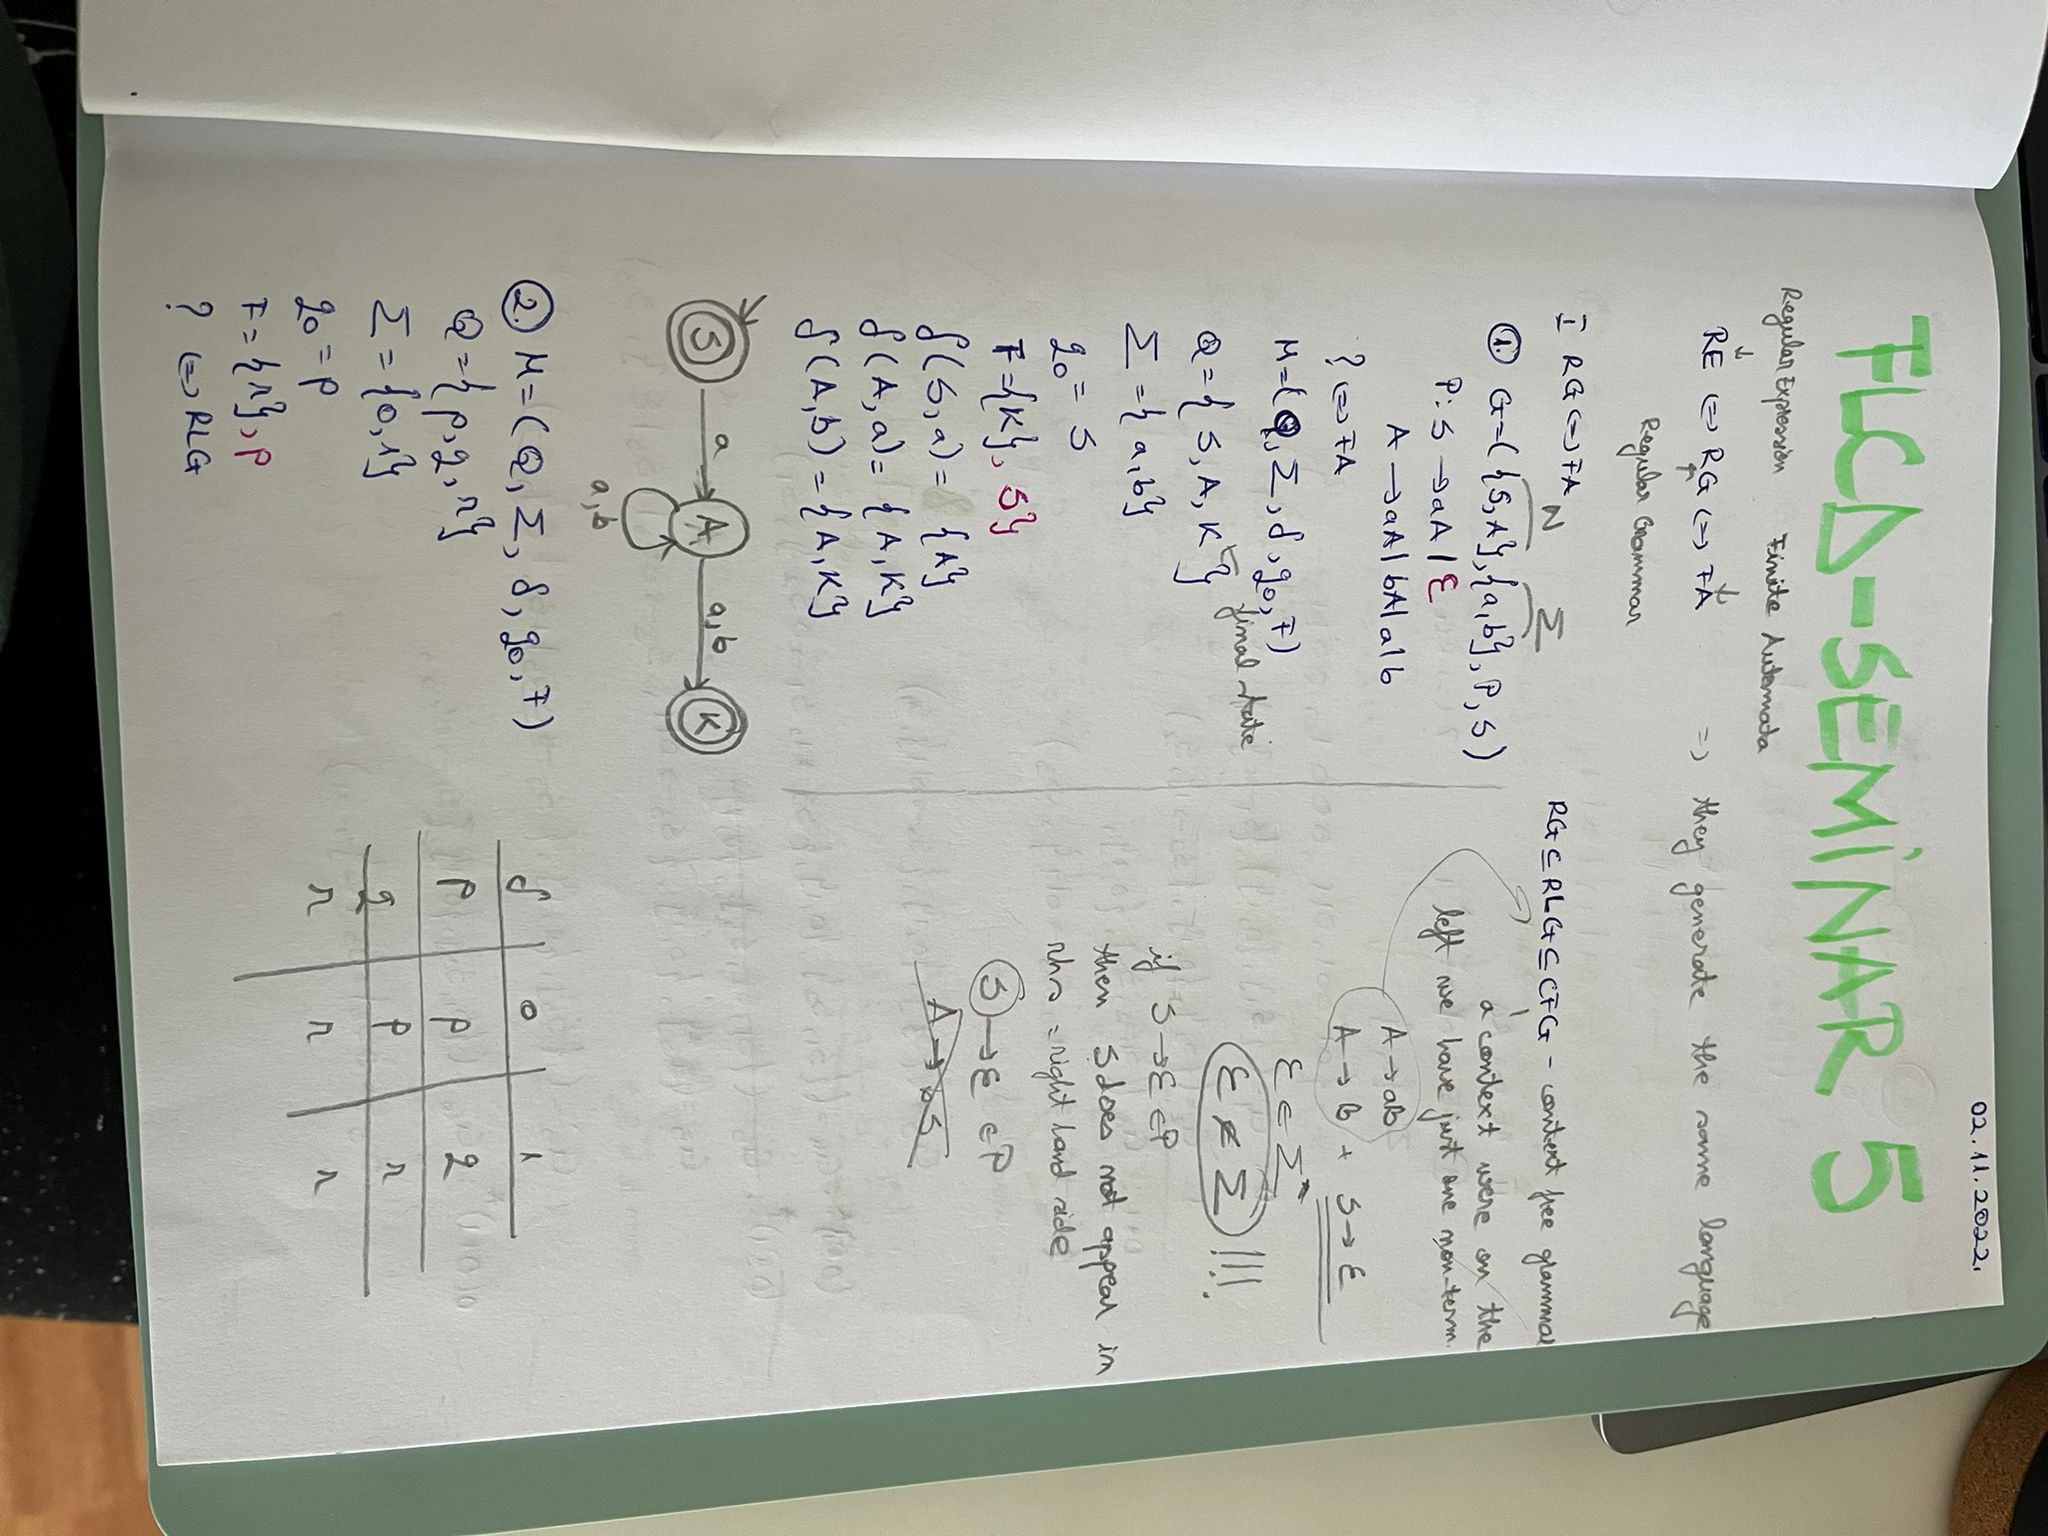 02.11.2022.
FLCD-SEMINAR 5
Regular Expression Finite Automata
↓ ↓
RE <=> RG <=> FA => they generate the same language
↑
Regular Grammar
I RG <=> FA
N Σ
1. G=({S,A},{a,b},P,S)
P: S → aA | ε
A → aA | bA | a | b
? <=> FA
M=(Q,Σ,δ,q0,F)
final state
Q={S,A,K}
Σ={a,b}
q0 = S
F={K}, S}
δ(S,a)= {A}
δ(A,a)= {A,K}
δ(A,b)={A,K}
RG ⊆ RLG ⊆ CFG - context free grammar
a context were on the
left we have just one non-term.
A → aB
A → B + S → ε
ε ∈ Σ*
ε ∉ Σ !!!.
if S → ε ∈ P
then S does not appear in
rhs = right hand side
S → ε ∈ P
A → bS
S a A a,b K
a,b
2. M=(Q,Σ,δ,q0,F)
Q={p,q,r}
Σ={0,1}
q0=p
F={r},p
? <=> RLG
δ 0 1
p p q
q p r
r r r